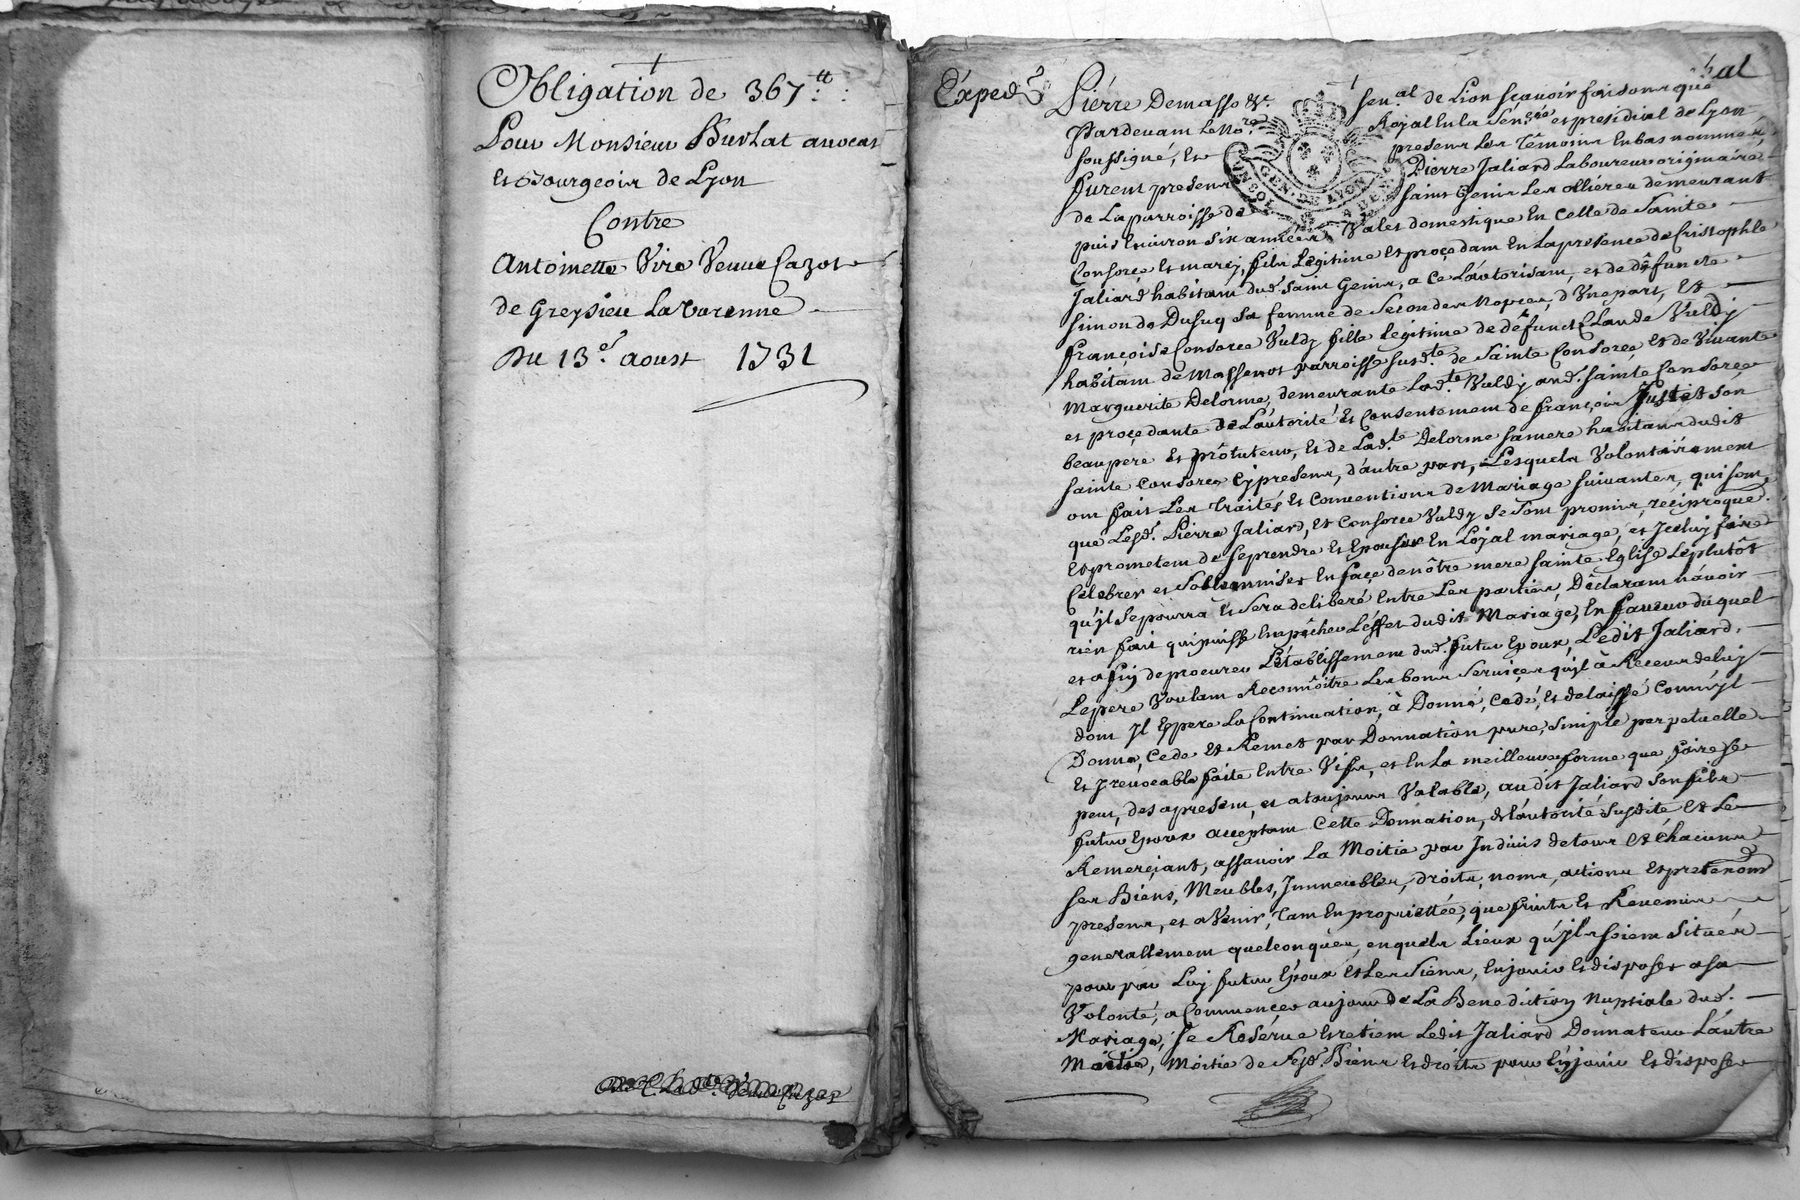 Obligation de 367ᵗᵗ
Pour Monsieur Burlat auocat
Et Bourgeois de Lyon
Contre
Antoinette Vire Veuue Cazot
de Greysieu La Varenne
Du 13e. aoust 1731
Expedé
Pierre Demasso &c. senal de Lion scauoir faisons que
Pardeuant Le Nore Royal En la Senée et presidial de Lyon
soussigné, Et presens Les Témoins Enbas nommés
furent presens Pierre Jaliard Laboureur originaire
de La parroisse de saint Genis Les ollieres demeurant
puis Enuiron six années Valet domestique En Celle de Sainte
Consorce Et marcy, fils Legitime Et procedant En La presence de Cristophle
Jaliard habitant dud. saint Genis, a Ce L'autorisant, et de défuncte
Simonde Dusuq sa femme de Secondes Nopces, d'Vne part, Et
françoise Consorce Vuldy fille Legitime de défunct Claude Vuldy
habitant de Massenot parroisse susdte. de Sainte Consorce Et de Viuante
Marguerite Delorme, demeurante Ladte. Vuldy aud. sainte Consorce
et procedante de L'autorité Et Consentement de françois Justet son
beaupere Et prôtuteur, Et de Ladte. Delorme sa mere habitans dudit
sainte Consorce Cy presens, d'autre part, Lesquels Volontairement
ont fait Les Traités Et Conuentions de Mariage suiuantes, qui sont
que Lesd. Pierre Jaliard, Et Consorce Vuldy se sont promis, réciproque.
Et prometent de se prendre Et Epouser En Loyal mariage, et Jceluy faire
Célebrer et Sollemniser En face de nôtre mere sainte Eglise Leplutôt
qu'jl se pourra Et sera deliberé Entre Les parties, Déclarant n'auoir
rien fait qui puisse Empêcher L'effet dudit Mariage, En faueur duquel
et afin de procurer L'établissement dud. futur Epoux, Ledit Jaliard,
Le pere Voulant Reconnôitre Les bons Seruices qu'jl à Receus de luy
dont Jl Espere La Continuation, à Donné, Cedé, Et delaissé Comm'jl
Donne, Cede Et Remet par Donnation pure, simple perpetuelle
Et jreuocable faite Entre Vifs, et En La meilleure forme que faire se
peut, des apresent, et a toujours Valable, audit Jaliard son fils
futur Epoux acceptant Cette Donnation, de L'autorité susdite Et Le
Remerciant, assauoir La Moitie par Indiuis de tous Et chacuns
ses Biens, Meubles, Jmmeubles, droits, noms, actions Et pretentions
presens, et a Venir, Tant En proprietté, que fruits Et Reuenus
generallement quelconques, en quels Lieux qu'jls soient situés
pour par Luy futur Epoux Et Les Siens, En jouir Et disposer a sa
Volonté, a Commencer aujour de La Benediction Nuptiale dud.
Mariage, se Réserue Et retient Ledit Jaliard Donnateur L'autre
Moitie, Moitie de Sesd. Biens Et droits pour En jouir Et disposer